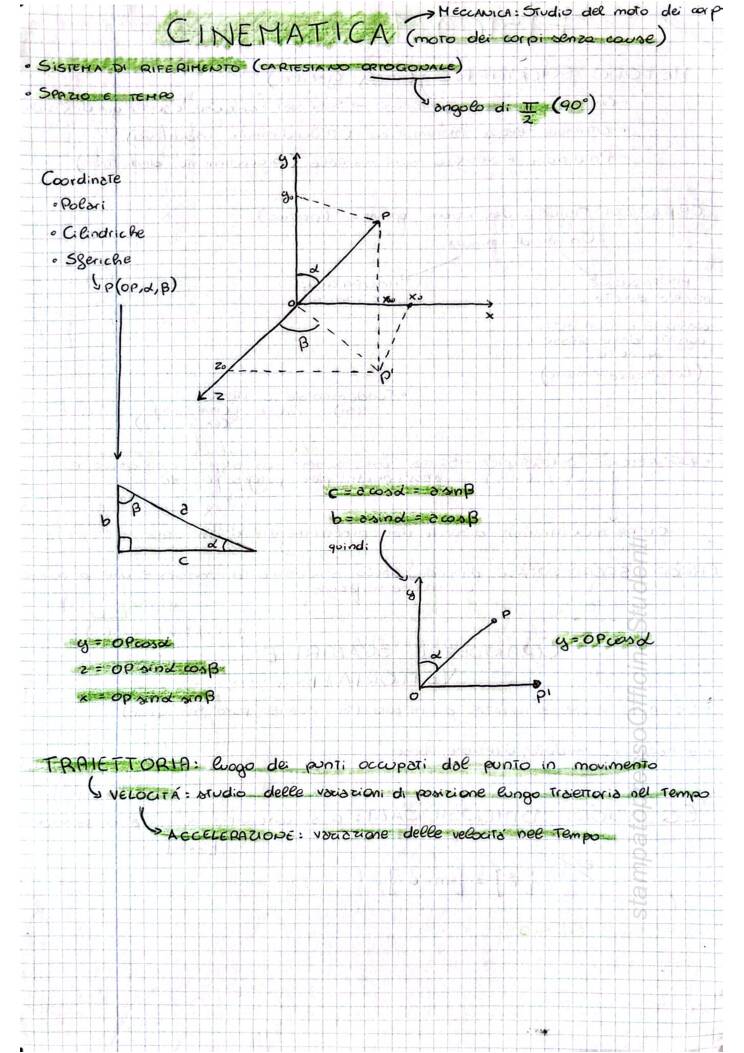 CINEMATICA
→ MECCANICA: Studio del moto dei corp
(moto dei corpi senza cause)
• SISTEMA DI RIFERIMENTO (CARTESIANO ORTOGONALE)
• SPAZIO E TEMPO
angolo di π/2 (90°)
Coordinate
• Polari
• Cilindriche
• Sferiche
P(OP,α,β)
y
y₀
P
α
O
x₀
x
β
z₀
P'
z
b
β
a
α
c
c = a cosα = a sinβ
b = a sinα = a cosβ
quindi
y
P
α
O
P'
y = OP cosα
y = OP cosα
z = OP sinα cosβ
x = OP sinα sinβ
TRAIETTORIA: luogo dei punti occupati dal punto in movimento
VELOCITÁ: studio delle variazioni di posizione lungo Traiettoria nel Tempo
ACCELERAZIONE: variazione delle velocitá nel Tempo
stampatopressoOfficineStudenti